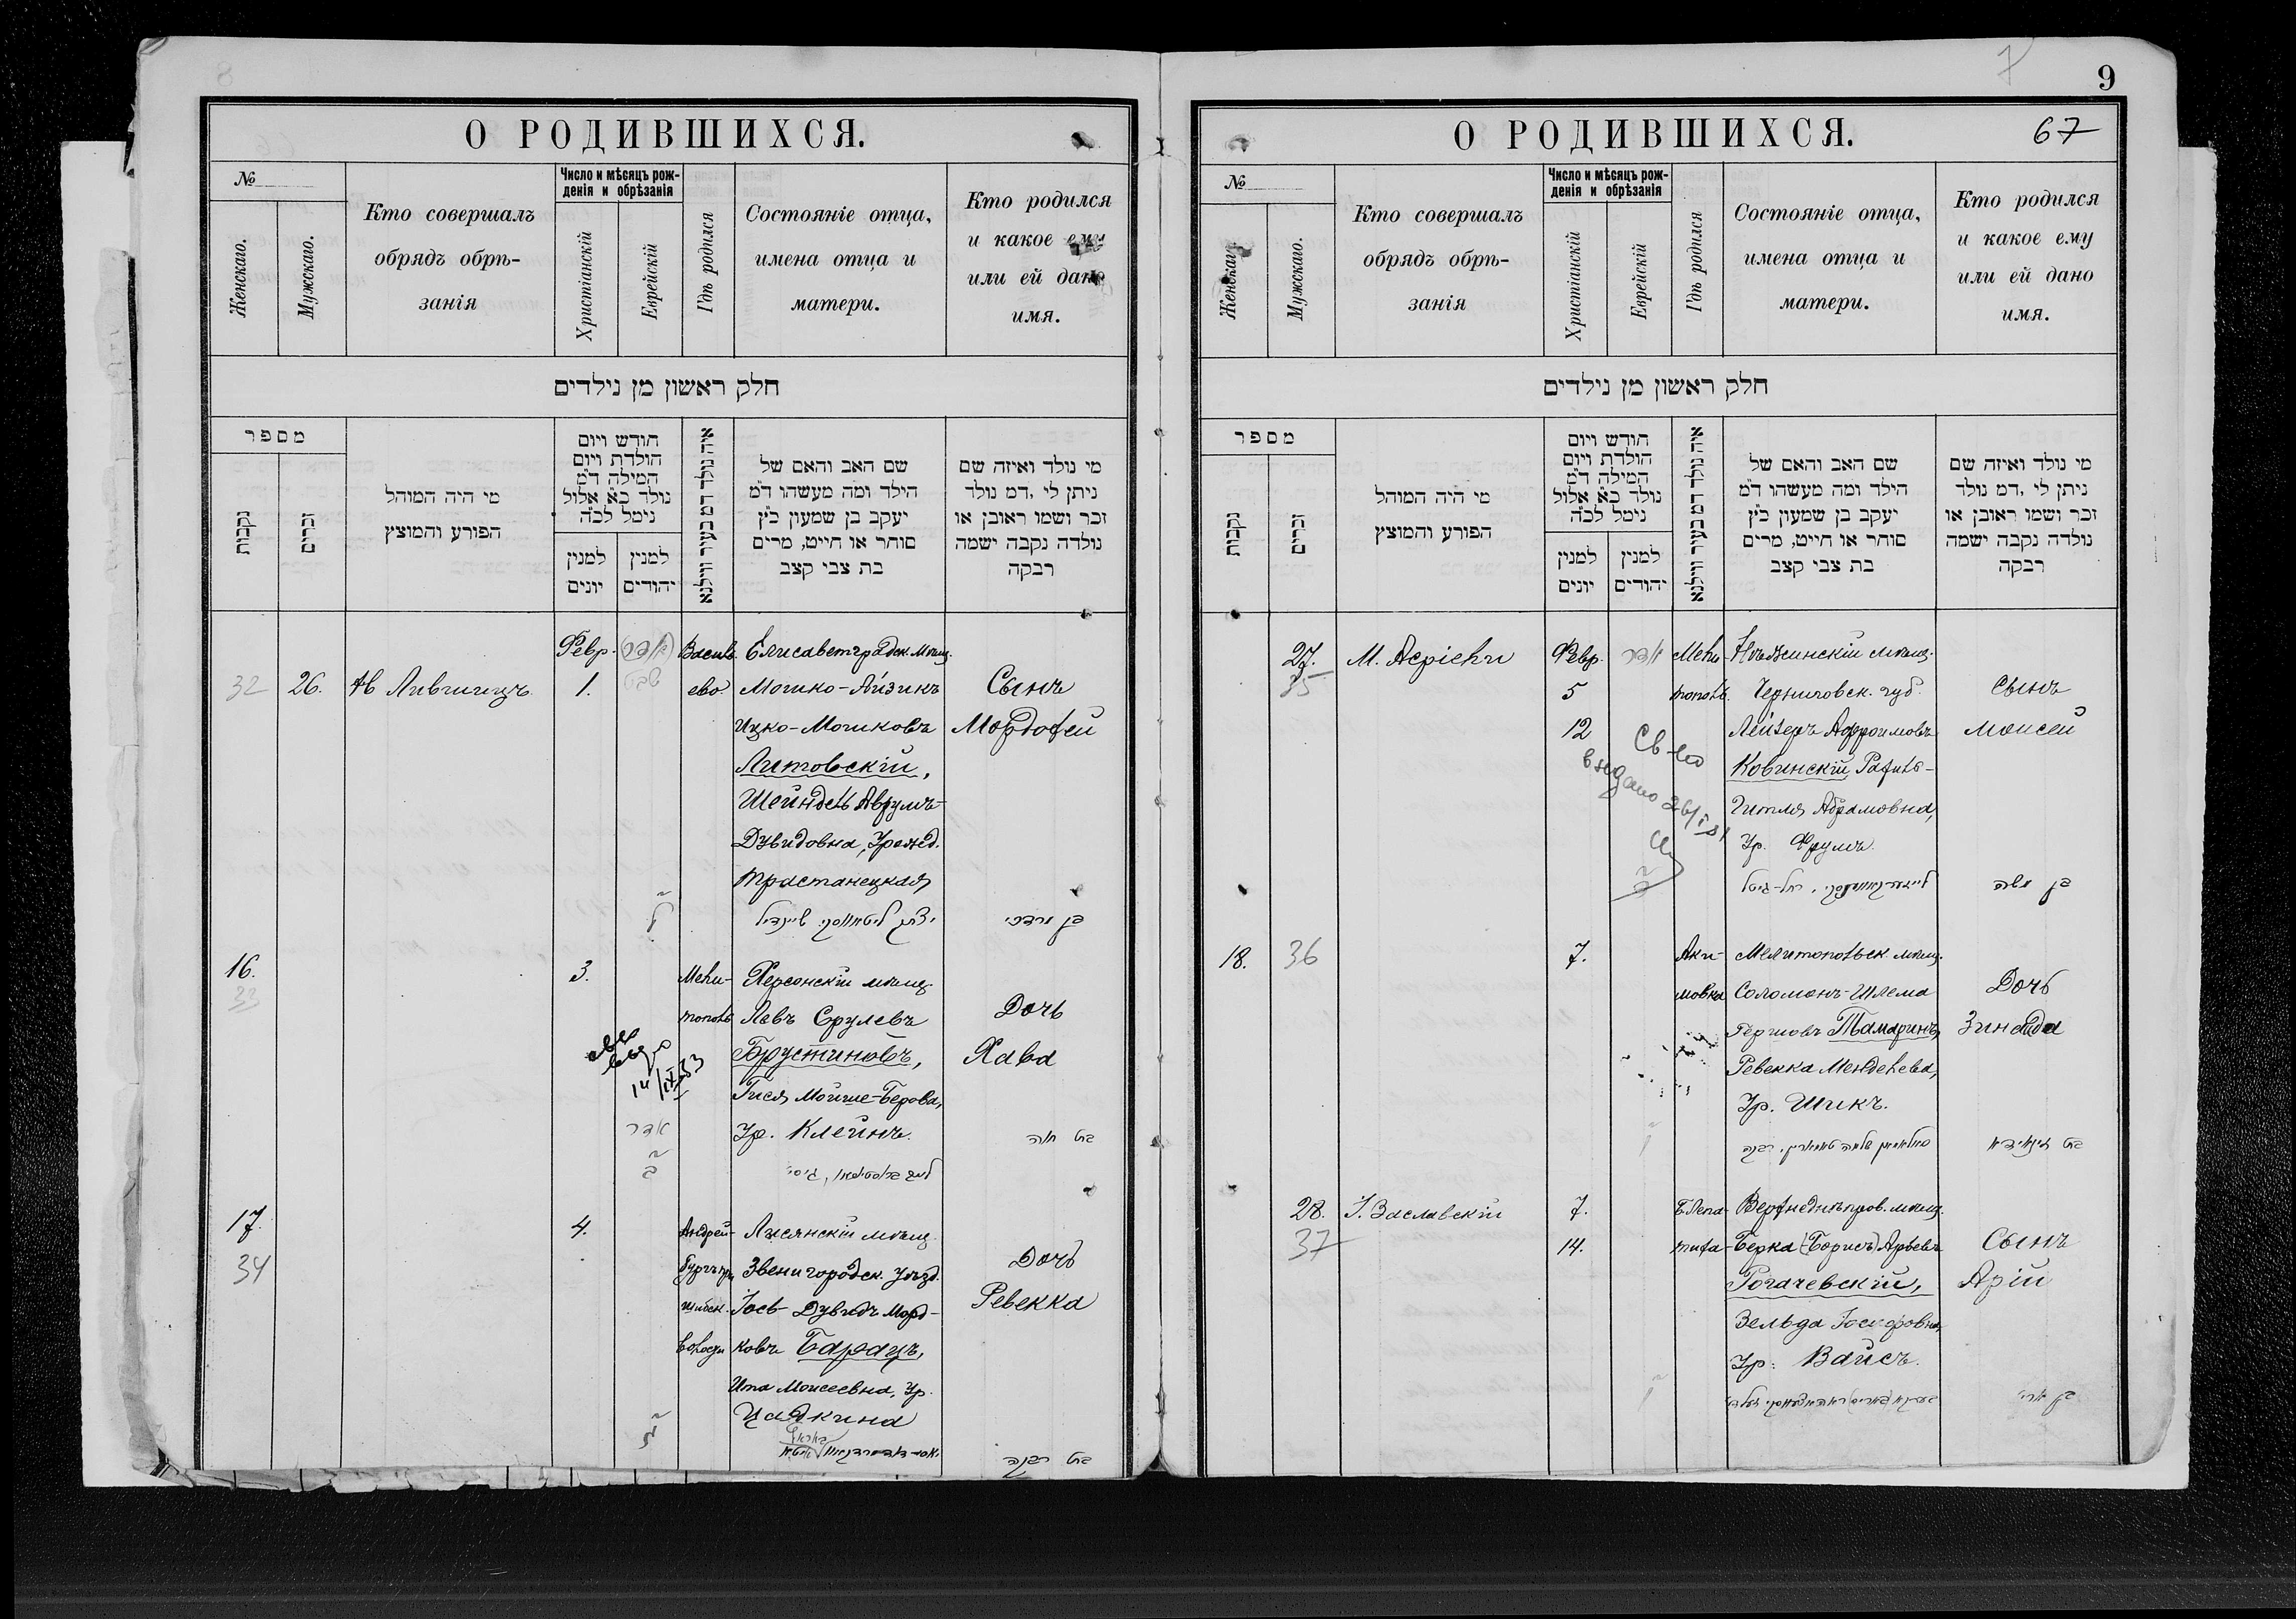 8
О РОДИВШИХСЯ.
№
Женскаго.
Мужскаго.
Кто совершалъ
обрядъ обрѣ-
занія
Число и мѣсяцъ рож-
денія и обрѣзанія
Христіанскій
Еврейскій
Гдѣ родился
Состояніе отца,
имена отца и
матери.
Кто родился
и какое ему
или ей дано
имя.
חלק ראשון מן נילדים
מספר
נקבות
זכרים
מי היה המוהל
הפורע והמוצץ
חודש ויום
הולדת ויום
המילה ד״מ
נולד כ״א אלול
נימל לכ״ה
למנין
יונים
למנין
יהודים
איה נולד דמ בעיר ווילנא
שם האב והאם של
הילד ומה מעשהו ד״מ
יעקב בן שמעון כ״ץ
סוחר או חייט, מרים
בת צבי קצב
מי נולד ואיזה שם
ניתן לי ,דמ נולד
זכר ושמו ראובן או
נולדה נקבה ישמה
רבקה
32
26.
Лившицъ
Февр.
1.
שבט
Васил-
ево.
Елисаветградск. мѣщ.
Мошко-Айзикъ
Ицко-Мошковъ
Литовскій,
Шейндель Аврумъ-
Дувидовна, Урожд.
Тростанецкая
Сынъ
Мордохей
בן מרדכי
16.
33
3.
Мели-
тополь
Херсонскій мѣщ.
Левъ Срулевъ
Брустиновъ,
Гися Мойше-Берова,
Ур. Клейнъ.
Дочь
Хава
14/IX 33
אדר
ב
בת חוה
17.
34
4.
Андрей-
бургъ
волости
Лисянскій мѣщ.
Звенигородск. уѣзд.
Іось-Дувидъ Морд-
ковъ Барацъ,
Ита Моисеевна, Ур.
Цапкина
Дочь
Ревекка
בת רבקה
7
9
О РОДИВШИХСЯ.
67
№
Женскаго.
Мужскаго.
Кто совершалъ
обрядъ обрѣ-
занія
Число и мѣсяцъ рож-
денія и обрѣзанія
Христіанскій
Еврейскій
Гдѣ родился
Состояніе отца,
имена отца и
матери.
Кто родился
и какое ему
или ей дано
имя.
חלק ראשון מן נילדים
מספר
נקבות
זכרים
מי היה המוהל
הפורע והמוצץ
חודש ויום
הולדת ויום
המילה ד״מ
נולד כ״א אלול
נימל לכ״ה
למנין
יונים
למנין
יהודים
איה נולד דמ בעיר ווילנא
שם האב והאם של
הילד ומה מעשהו ד״מ
יעקב בן שמעון כ״ץ
סוחר או חייט, מרים
בת צבי קצב
מי נולד ואיזה שם
ניתן לי ,דמ נולד
זכר ושמו ראובן או
נולדה נקבה ישמה
רבקה
27.
35
М. Аспіели
Февр.
5
12
אדר
Мели-
тополь.
Нѣжинскій мѣщ.
Черниговск. губ.
Лейзеръ Афроимовъ
Ковинскій, Рахиль-
Гитля Абрамовна,
Ур. Фрумъ.
Сынъ
Моисей
Св-во
выдано 26/
בן משה
18.
36
7.
Аки-
мовка
Мелитопольск. мѣщ.
Соломонъ-Шлема
Гершовъ Тамаринъ,
Ревекка Менделева,
Ур. Шикъ.
Дочь
Зинаида
בת זינאידא
28.
37
І. Заславскій
7.
14.
Б. Лепа-
тиха
Верхнеднѣпров. мѣщ.
Берка (Борисъ) Арьевъ
Рогачевскій,
Зельда Іосифовна,
Ур. Вайсъ.
Сынъ
Арій
בן ארי